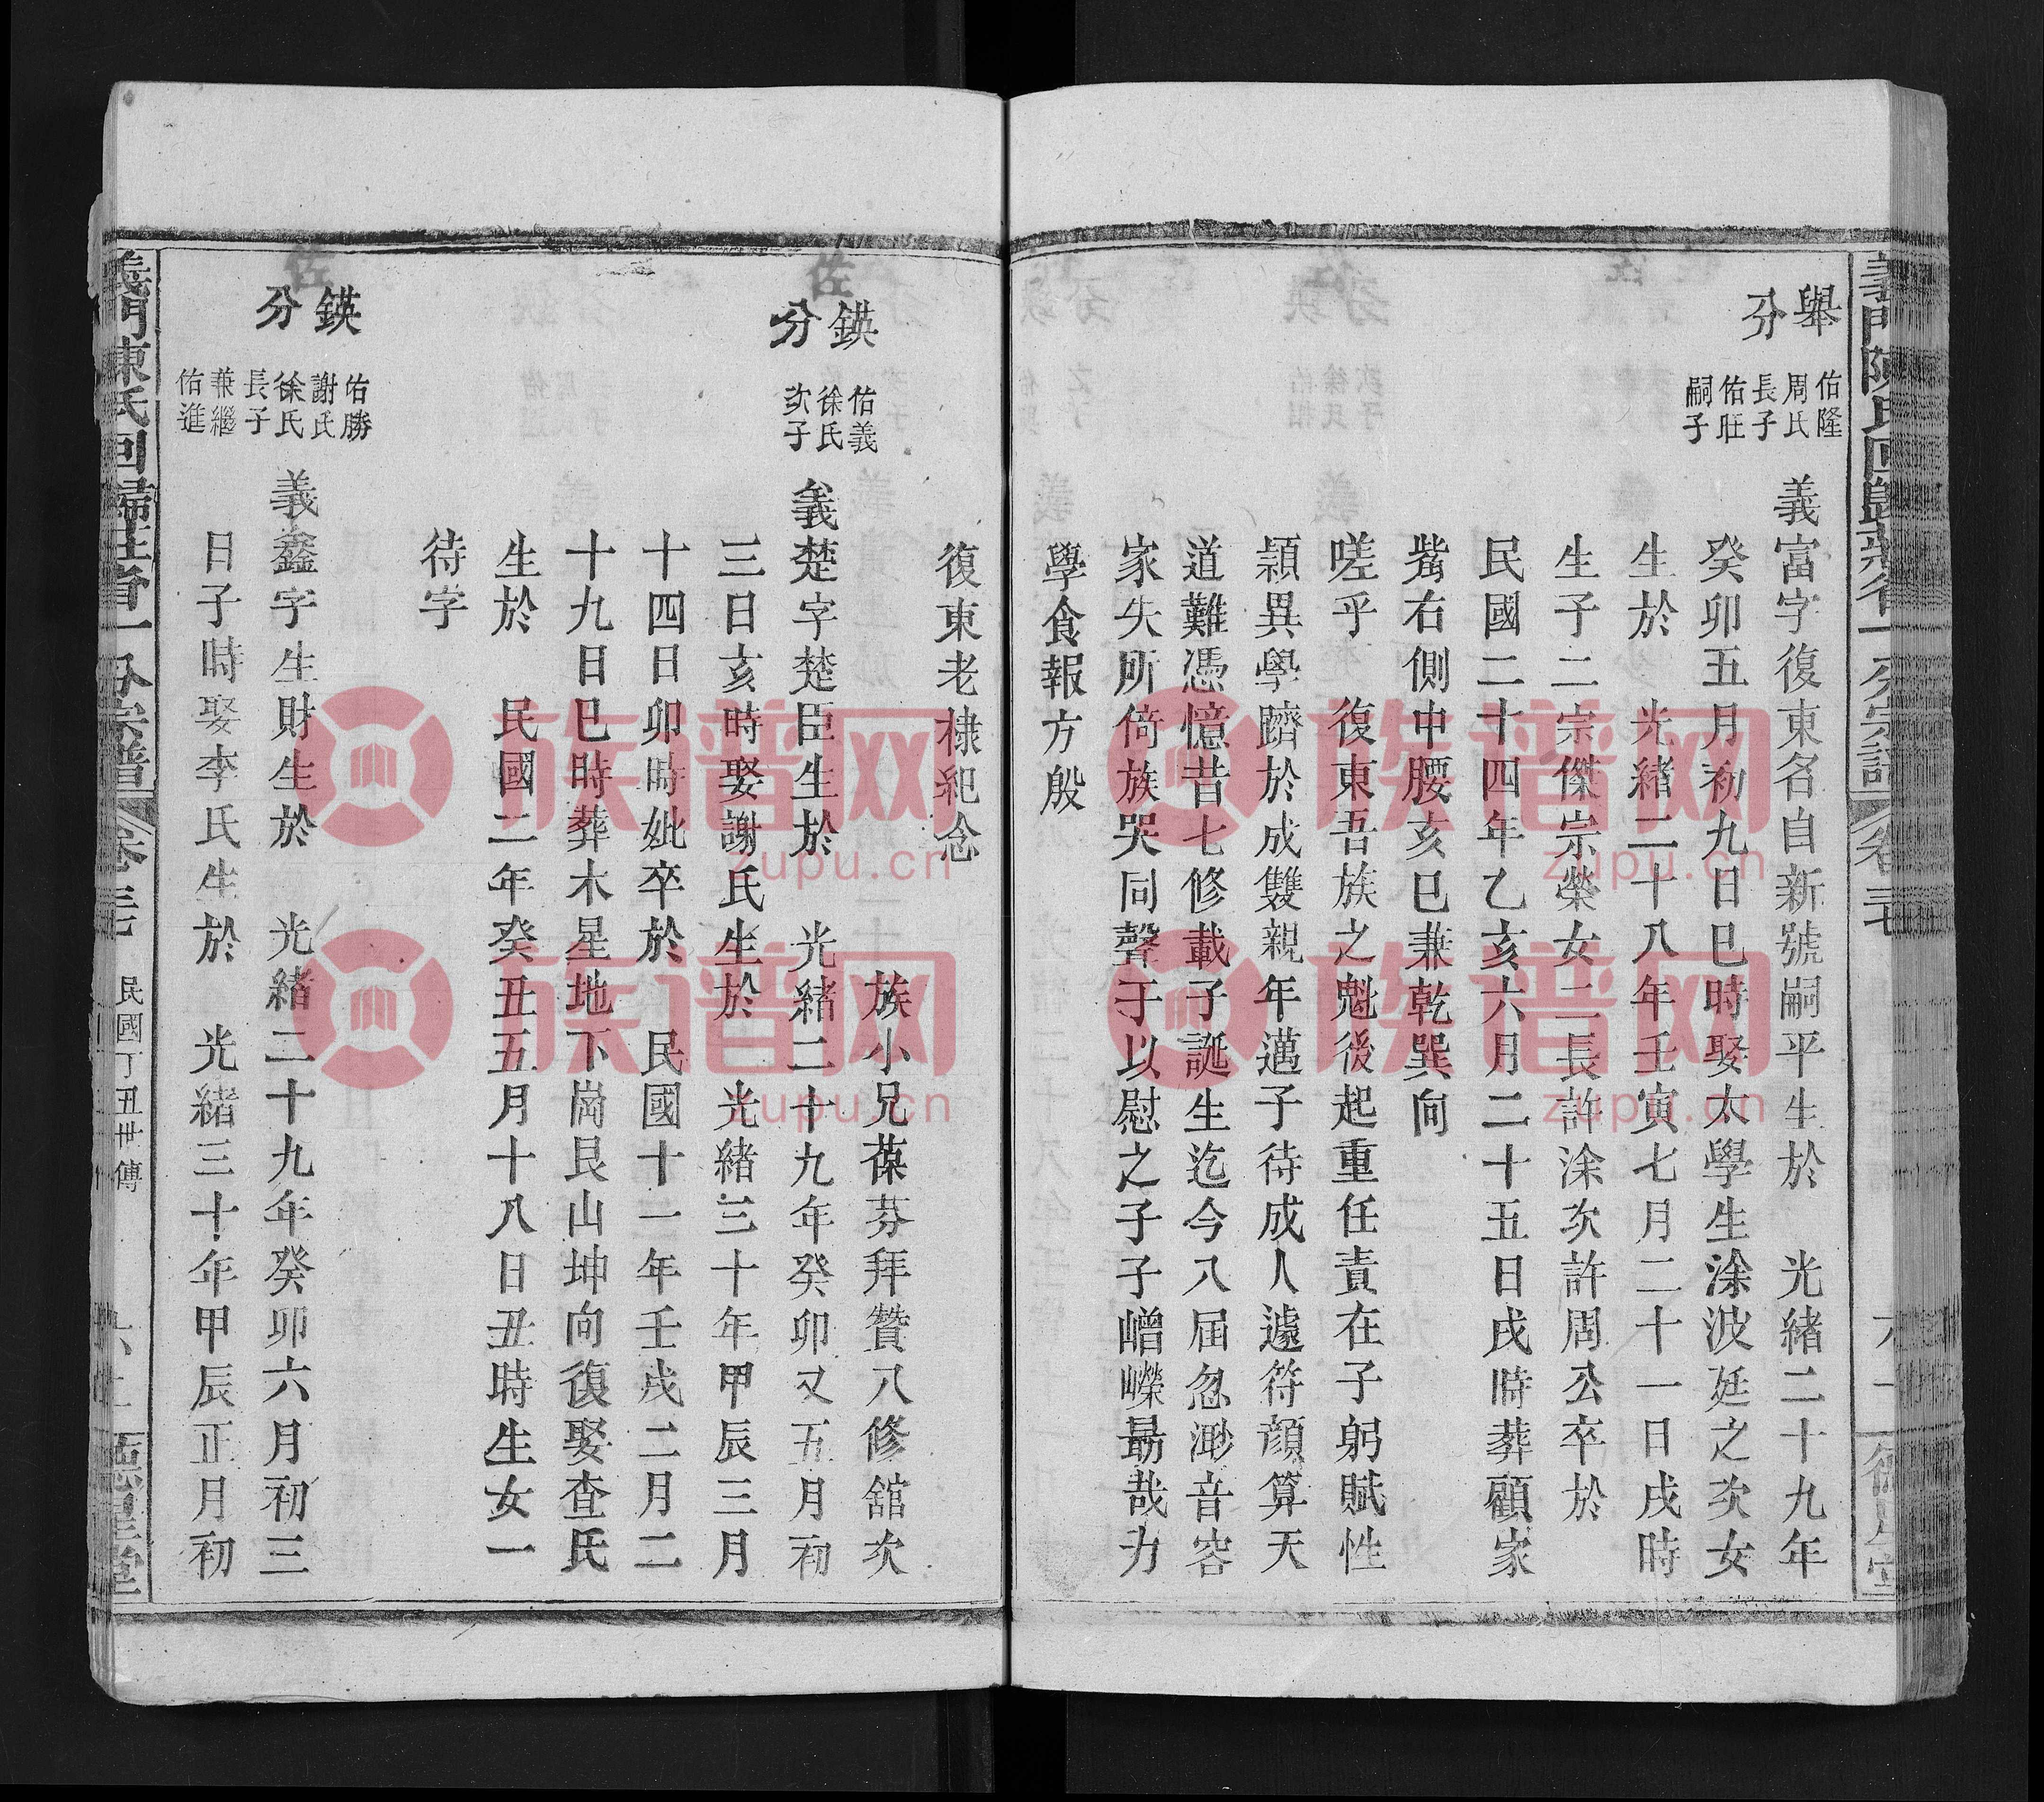 義門陳氏回歸莊 一分宗譜
舉分
佑隆
周氏
長子
佑旺
嗣子
義富字復東名自新號嗣平生於 光緒二十九年
癸卯五月初九日巳時娶太學生涂波廷之次女
生於 光緒二十八年壬寅七月二十一日戌時
生子二宗傑宗榮女二長許涂次許周公卒於
民國二十四年乙亥六月二十五日戌時葬顧家
嘴右側中腰亥巳兼乾巽向
嗟乎 復東吾族之魁後起重任責在子躬賦性
穎異學躋於成雙親年邁子待成人遽符顔算天
道難憑憶昔七修載子誕生迄今八屆忽渺音容
家失所倚族哭同聲于以慰之子子嶒嶸勗哉力
學食報方殷
復東老棣紀念
族小兄葆芬拜贊八修舘次
佐
鍈分
佑義
徐氏
次子
義楚字楚臣生於 光緒二十九年癸卯又五月初
三日亥時娶謝氏生於 光緒三十年甲辰三月
十四日卯時妣卒於 民國十一年壬戌二月二
十九日巳時葬木星地下崗艮山坤向復娶查氏
生於 民國二年癸丑五月十八日丑時生女一
待字
佐
鍈分
佑勝
謝氏
徐氏
長子
兼繼
佑進
義鑫字生財生於 光緒二十九年癸卯六月初三
日子時娶李氏生於 光緒三十年甲辰正月初
義門陳氏回歸莊 一分宗譜 民國丁丑世傳 堂
族谱网
zupu.cn
族谱网
zupu.cn
族谱网
zupu.cn
族谱网
zupu.cn